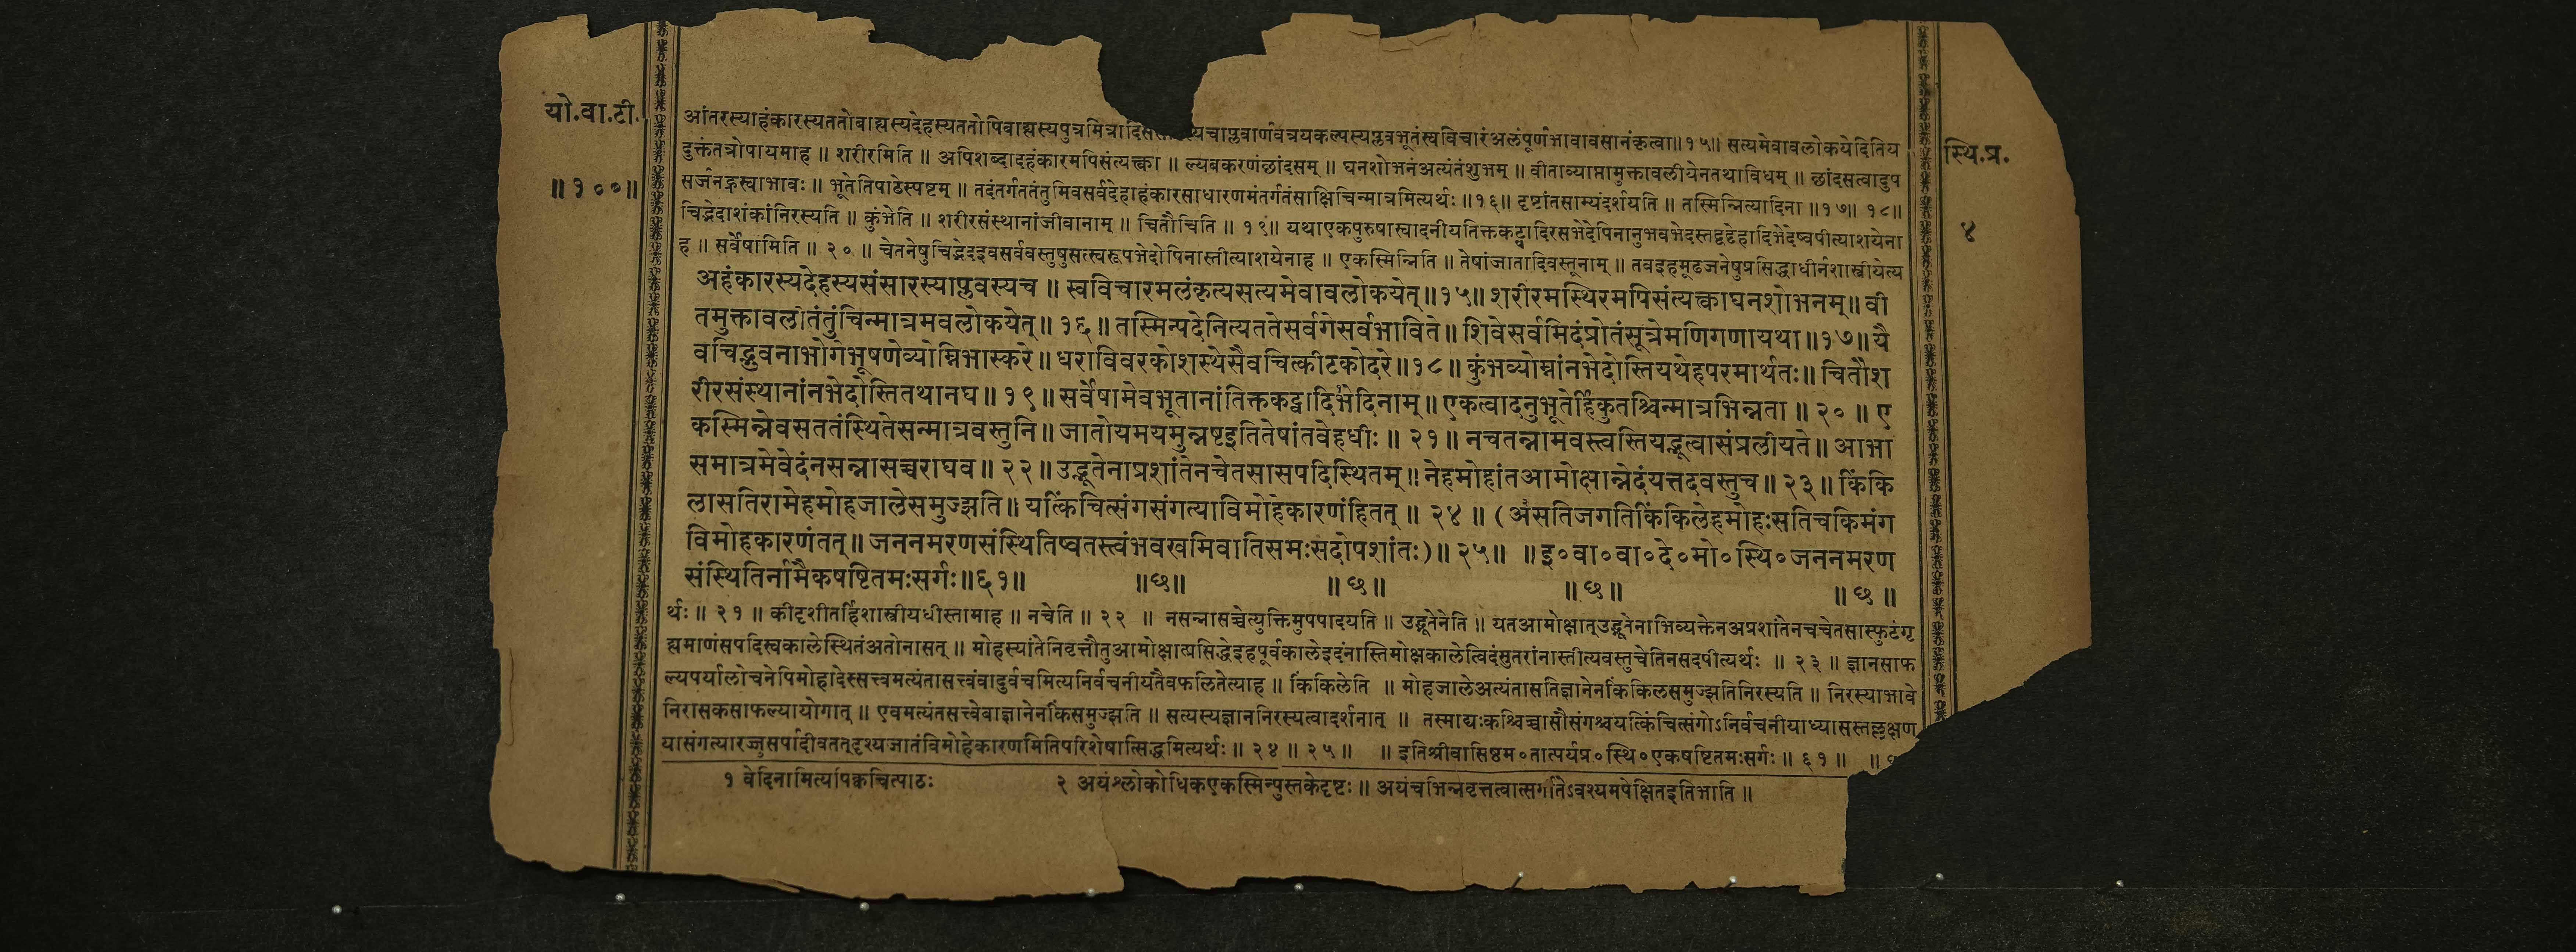 यो.वा.टी.
॥३००॥
स्थि.प्र.
४
आंतरस्याहंकारस्यततोबाह्यस्यदेहस्यततोपिबाह्यस्यपुत्रमित्रादिसं यचाप्लवार्णवत्रयकल्पस्यप्लवभूतंस्वविचारंअलंपूर्णभावावसानंकृत्वा॥१५॥ सत्यमेवावलोकयेदितिय
दुक्तंतत्रोपायमाह ॥ शरीरमिति ॥ अपिशब्दादहंकारमपिसंत्यक्त्वा ॥ ल्यबकरणंछांदसम् ॥ घनशोभनंअत्यंतंशुभम् ॥ वीताव्याप्तामुक्तावलीयेनतथाविधम् ॥ छांदसत्वादुप
सर्जनह्रस्वाभावः ॥ भूतेतिपाठेस्पष्टम् ॥ तदंतर्गततंतुमिवसर्वदेहाहंकारसाधारणमंतर्गतंसाक्षिचिन्मात्रमित्यर्थः ॥१६॥ दृष्टांतसाम्यंदर्शयति ॥ तस्मिन्नित्यादिना ॥१७॥ १८॥
चिद्भेदाशंकांनिरस्यति ॥ कुंभेति ॥ शरीरसंस्थानांजीवानाम् ॥ चितौचिति ॥ १९॥ यथाएकपुरुषास्वादनीयतिक्तकट्वादिरसभेदेपिनानुभवभेदस्तद्वद्देहादिभेदेष्वपीत्याशयेना
ह ॥ सर्वेषामिति ॥ २० ॥ चेतनेषुचिद्भेदइवसर्ववस्तुषुसत्स्वरूपभेदोपिनास्तीत्याशयेनाह ॥ एकस्मिन्निति ॥ तेषांजातादिवस्तूनाम् ॥ तवइहमूढजनेषुप्रसिद्धाधीर्नशास्त्रीयेत्य
अहंकारस्यदेहस्यसंसारस्याप्लवस्यच ॥ स्वविचारमलंकृत्यसत्यमेवावलोकयेत् ॥१५॥ शरीरमस्थिरमपिसंत्यक्त्वाघनशोभनम् ॥ वी
तमुक्तावलीतंतुंचिन्मात्रमवलोकयेत् ॥ १६ ॥ तस्मिन्पदेनित्यततेसर्वगेसर्वभाविते ॥ शिवेसर्वमिदंप्रोतंसूत्रेमणिगणायथा ॥१७॥ यै
वचिद्भुवनाभोगेभूषणेव्योम्निभास्करे ॥ धराविवरकोशस्थेसैवचित्कीटकोदरे ॥१८॥ कुंभव्योम्नांनभेदोस्तियथेहपरमार्थतः ॥ चितौश
रीरसंस्थानांनभेदोस्तितथानघ ॥ १९ ॥ सर्वेषामेवभूतानांतिक्तकट्वादिभेदिनाम् ॥ एकत्वादनुभूतेर्हिकुतश्चिन्मात्रभिन्नता ॥ २० ॥ ए
कस्मिन्नेवसततंस्थितेसन्मात्रवस्तुनि ॥ जातोयमयमुन्नष्टइतितेषांतवेहधीः ॥ २१ ॥ नचतन्नामवस्त्वस्तियद्भूत्वासंप्रलीयते ॥ आभा
समात्रमेवेदंनसन्नासच्चराघव ॥ २२ ॥ उद्भूतेनाप्रशांतेनचेतसासपदिस्थितम् ॥ नेहमोहांतआमोक्षान्नेदंयत्तदवस्तुच ॥ २३ ॥ किंकि
लासतिरामेहमोहजालेसमुज्झति ॥ यत्किंचित्संगसंगत्याविमोहेकारणंहितत् ॥ २४ ॥ (असतिजगतिकिंकिलेहमोहःसतिचकिमंग
विमोहकारणंतत् ॥ जननमरणसंस्थितिष्वतस्त्वंभवखमिवातिसमःसदोपशांतः) ॥ २५ ॥ ॥ इ०वा०वा०दे०मो०स्थि०जननमरण
संस्थितिर्नामैकषष्टितमःसर्गः ॥६१॥ ॥छ॥ ॥छ॥ ॥छ॥ ॥छ॥
र्थः ॥ २१ ॥ कीदृशीतर्हिशास्त्रीयधीस्तामाह ॥ नचेति ॥ २२ ॥ नसन्नासच्चेत्युक्तिमुपपादयति ॥ उद्भूतेनेति ॥ यतआमोक्षात्उद्भूतेनाभिव्यक्तेनअप्रशांतेनचचेतसास्फुटंगृ
ह्यमाणंसपदिस्वकालेस्थितंअतोनासत् ॥ मोहस्यांतेनिवृत्तौतुआमोक्षात्प्रसिद्धेइहपूर्वकालेइदंनास्तिमोक्षकालेत्विदंसुतरांनास्तीत्यवस्तुचेतिनसदपीत्यर्थः ॥ २३ ॥ ज्ञानसाफ
ल्यपर्यालोचनेपिमोहादेस्सत्त्वमत्यंतासत्त्वंवादुर्वचमित्यनिर्वचनीयतैवफलितेत्याह ॥ किंकिलेति ॥ मोहजालेअत्यंतासतिज्ञानेनकिंकिलसमुज्झतिनिरस्यति ॥ निरस्याभावे
निरासकसाफल्यायोगात् ॥ एवमत्यंतसत्त्वेवाज्ञानेनकिंसमुज्झति ॥ सत्यस्यज्ञाननिरस्यत्वादर्शनात् ॥ तस्माद्यःकश्चिच्चासौसंगश्चयत्किंचित्संगोऽनिर्वचनीयाध्यासस्तल्लक्षण
यासंगत्यारज्जुसर्पादीवततदृश्यजातंविमोहेकारणमितिपरिशेषात्सिद्धमित्यर्थः ॥ २४ ॥ २५ ॥ ॥ इतिश्रीवासिष्ठम०तात्पर्यप्र०स्थि०एकषष्टितमःसर्गः ॥ ६१ ॥
१ वेदिनामित्यपिक्वचित्पाठः २ अयंश्लोकोधिकएकस्मिन्पुस्तकेदृष्टः ॥ अयंचभिन्नवृत्तत्वात्सर्गांतेऽवश्यमपेक्षितइतिभाति ॥